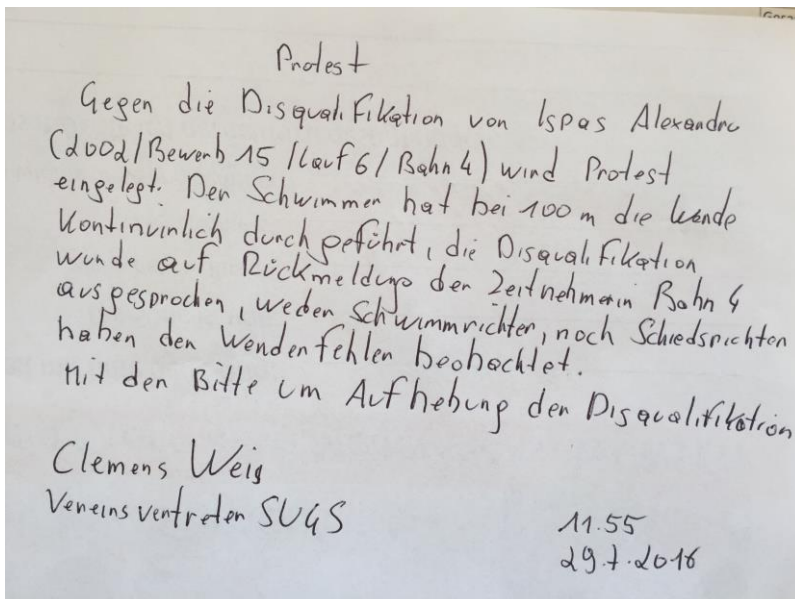 Protest
Gegen die Disqualifikation von Ispas Alexandru
(2002/Bewerb 15 /Lauf 6/Bahn 4) wird Protest
eingelegt. Der Schwimmer hat bei 100m die Wende
Kontinuirlich durchgeführt, die Disqualifikation
wurde auf Rückmeldung der Zeitnehmerin Bahn 4
ausgesprochen, weder Schwimmrichter, noch Schiedsrichter
haben den Wendenfehler beobachtet.
Mit der Bitte um Aufhebung der Disqualifikation
Clemens Weis
Vereinsvertreter SUGS
11.55
29.7.2016